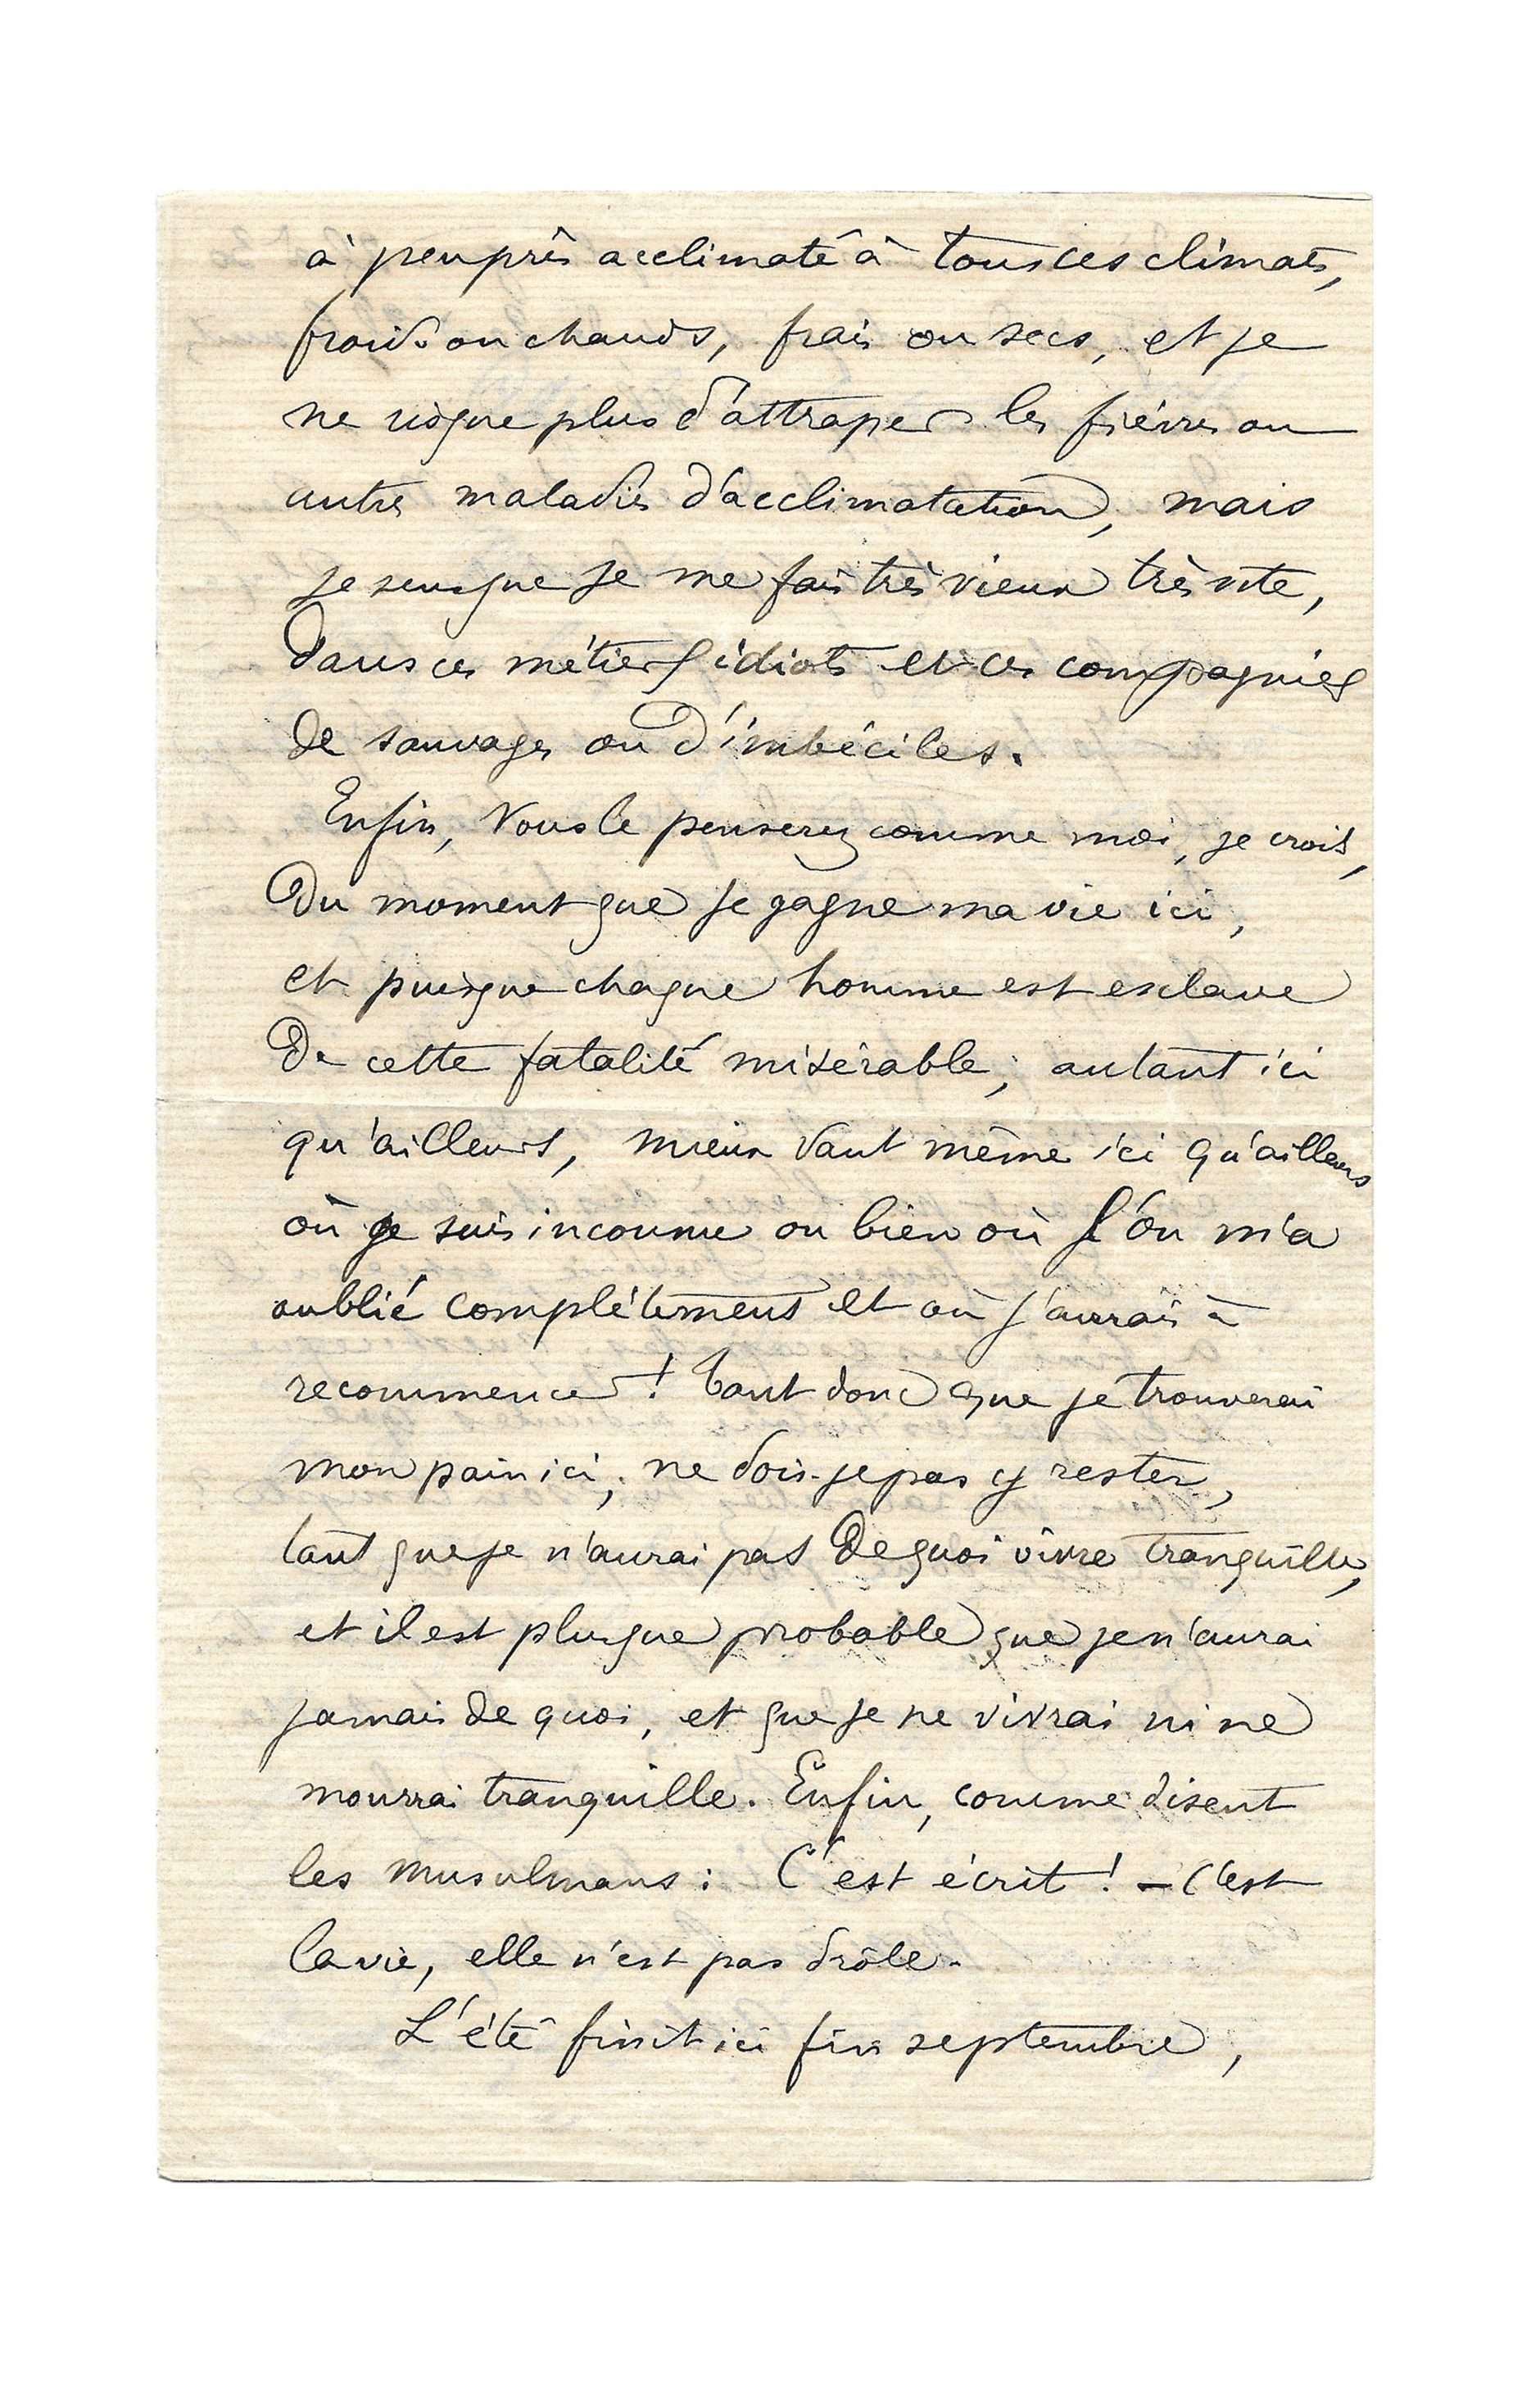 à peu près acclimaté à tous ces climats,
froids ou chauds, frais ou secs, et je
ne risque plus d'attraper les fièvres ou
autres maladies d'acclimatation, mais
je sens que je me fais très vieux très vite,
dans ces métiers idiots et ces compagnies
de sauvages ou d'imbéciles.
Enfin, vous le penserez comme moi, je crois,
du moment que je gagne ma vie ici,
et puisque chaque homme est esclave
de cette fatalité misérable, autant ici
qu'ailleurs, mieux vaut même ici qu'ailleurs
où je suis inconnu ou bien où l'on m'a
oublié complétement et où j'aurais à
recommencer! Tant donc que je trouverai
mon pain ici, ne dois-je pas y rester,
tant que je n'aurai pas de quoi vivre tranquille,
et il est plus que probable que je n'aurai
jamais de quoi, et que je ne vivrai ni ne
mourrai tranquille. Enfin, comme disent
les musulmans: C'est écrit! — C'est
la vie, elle n'est pas drôle.
L'été finit ici fin septembre,